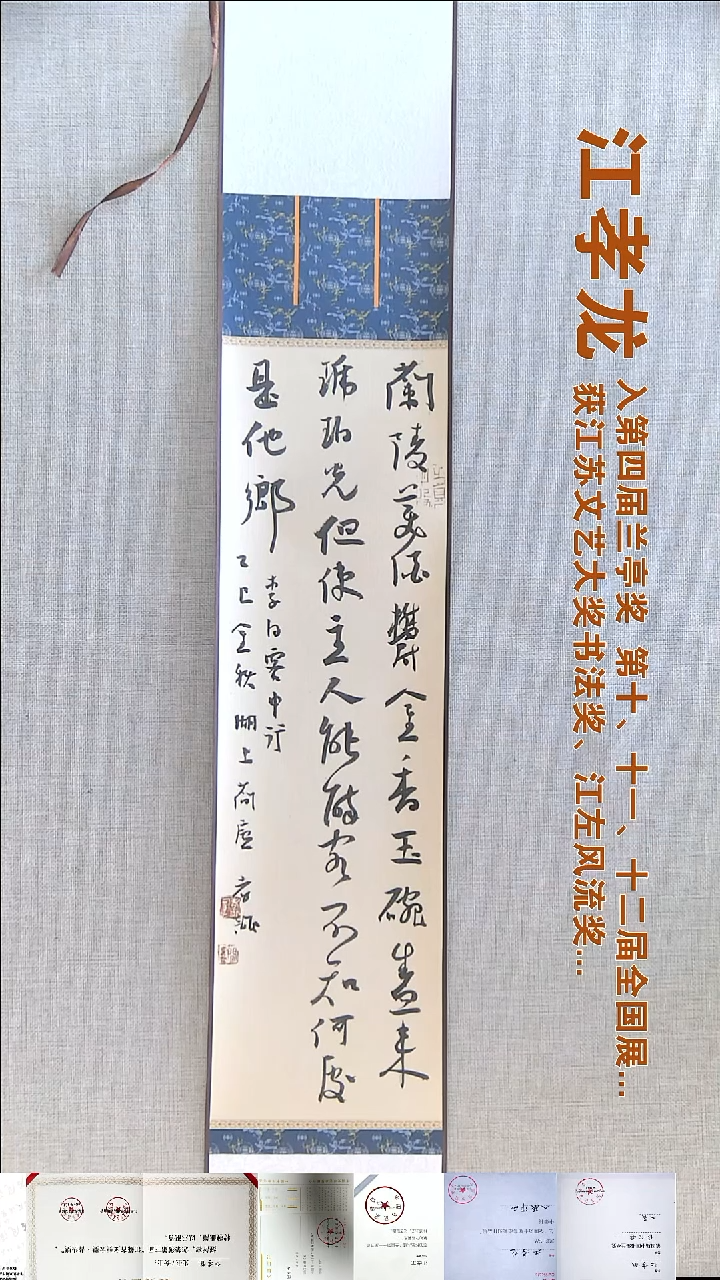 江孝龙
入第四届兰亭奖 第十、十一、十二届全国展...
获江苏文艺大奖书法奖、江左风流奖...
蘭陵美酒鬱金香玉碗盛来
琥珀光但使主人能醉客不知何處
是他鄉
李白客中行
乙巳金秋湖上荷廬孝龍